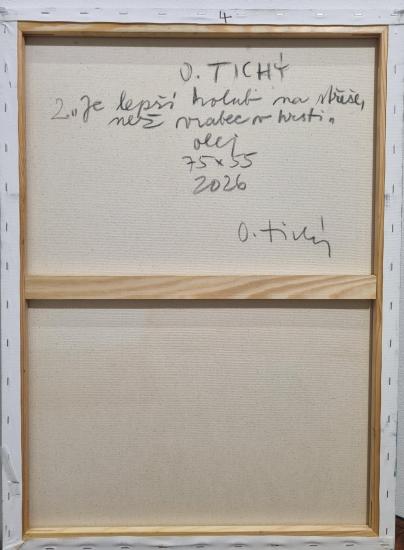 4
O. TICHÝ
2. „Je lepší holub na střeše,
než vrabec v hrsti„
olej
75x55
2026
O. Tichý